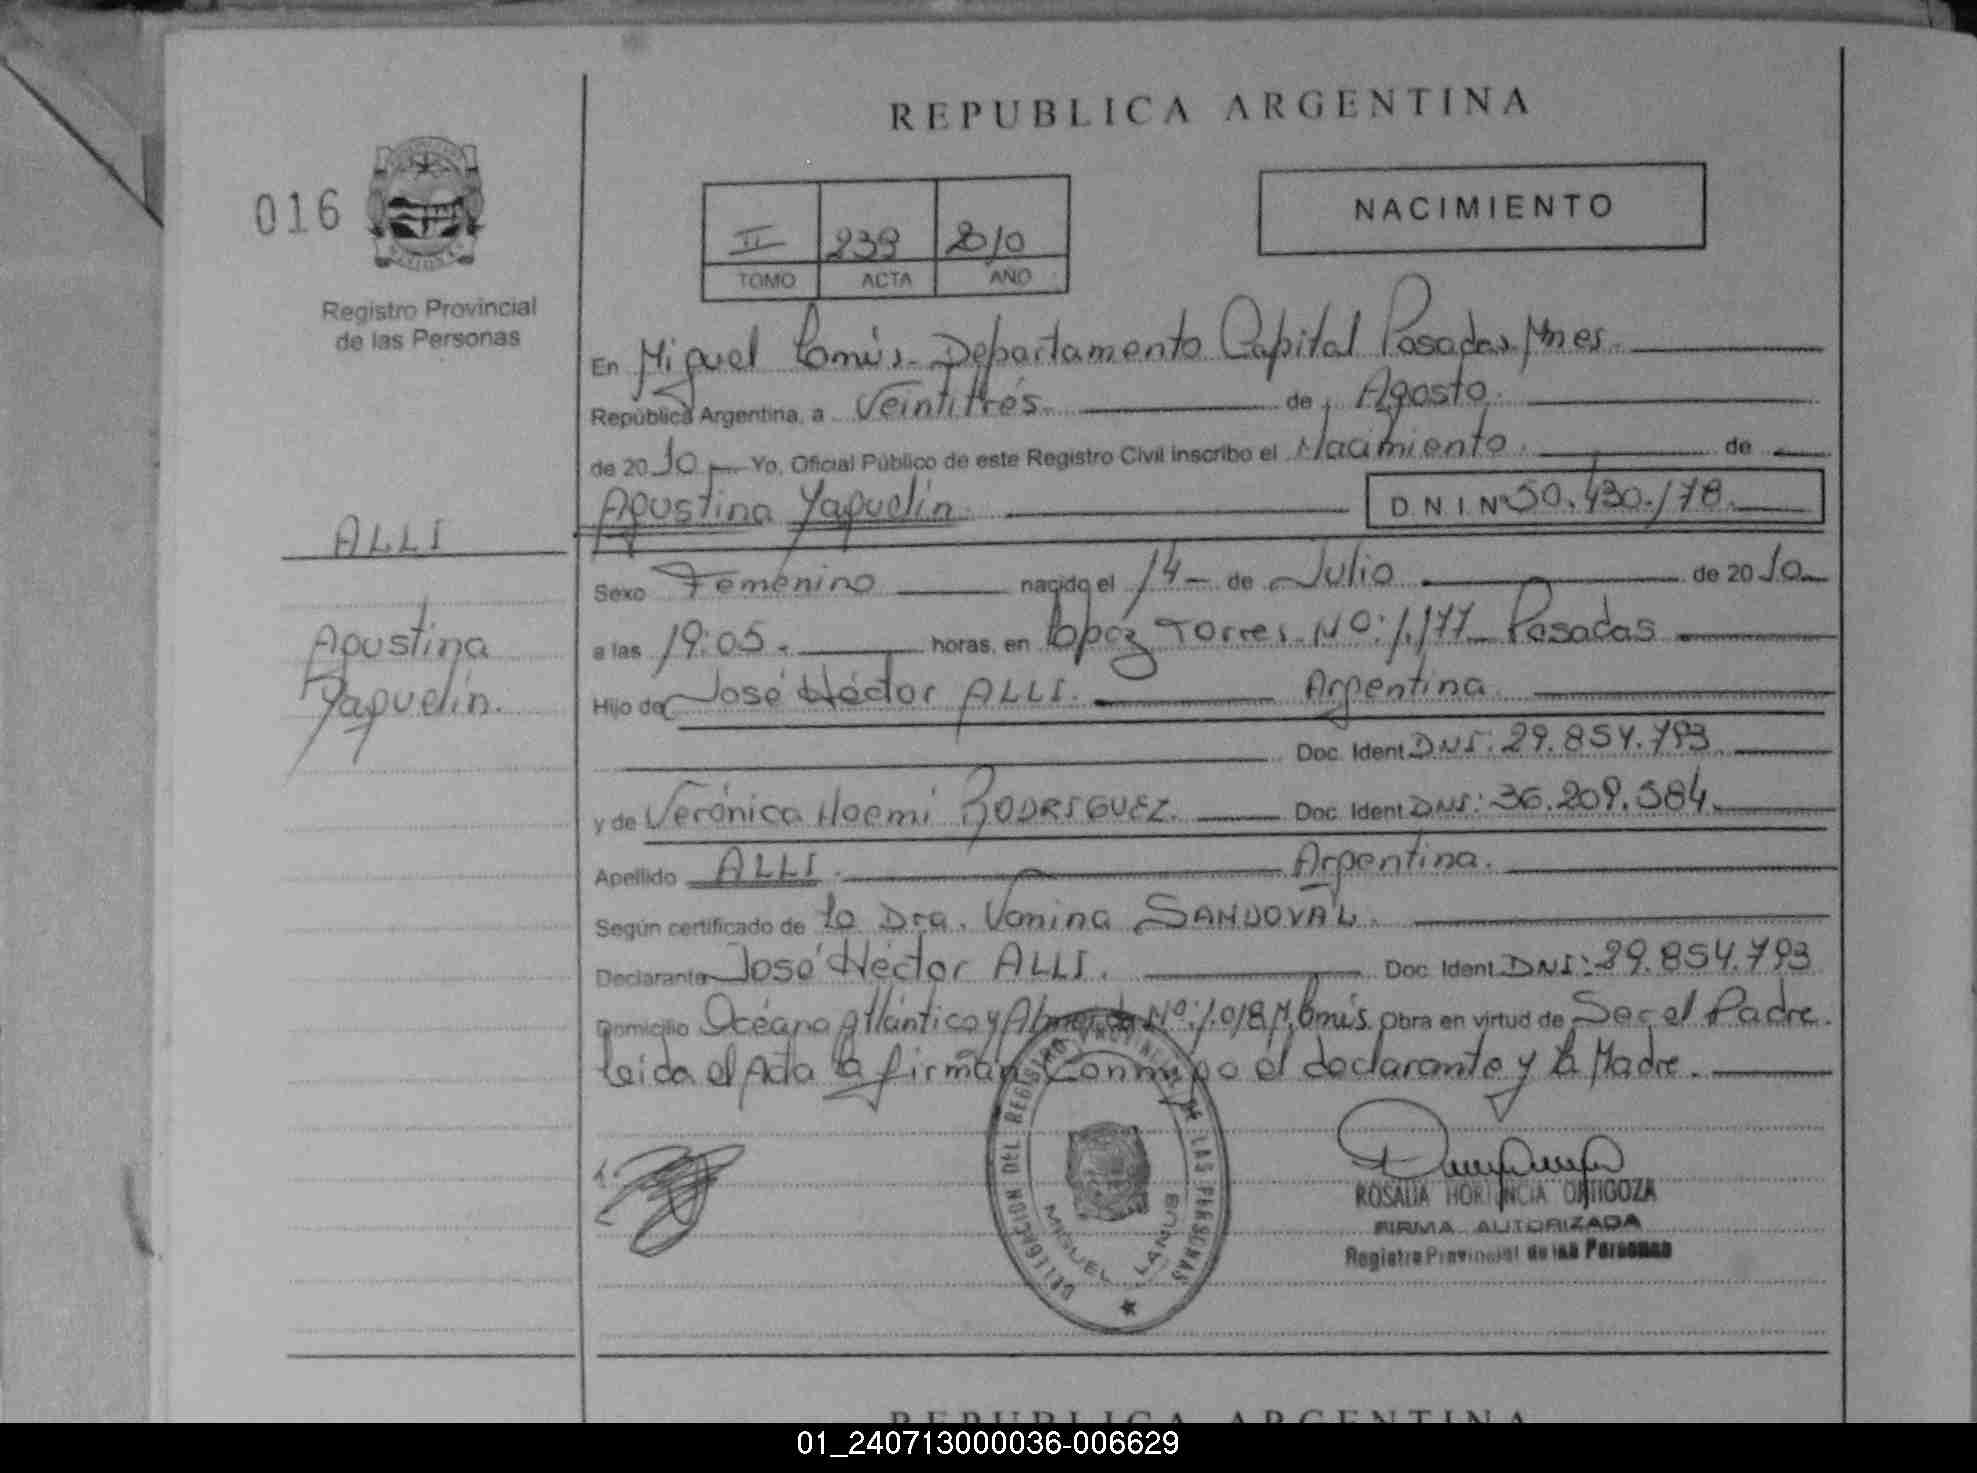 REPUBLICA ARGENTINA
016
NACIMIENTO
II 239 2010
TOMO ACTA AÑO
Registro Provincial
de las Personas
En Miguel Lanús - Departamento Capital Posadas Mnes.
República Argentina, a Veintitrés. de Agosto.
de 2010 Yo, Oficial Público de este Registro Civil inscribo el Nacimiento. de
Agustina Yaquelín. D.N.I. Nº 50.430.178.
ALLI
Sexo Femenino nacido el 14 - de Julio de 2010
Agustina
Yaquelín.
a las 19:05. horas, en López Torres Nº: 1.177 Posadas
Hijo de José Héctor ALLI. Argentina.
Doc. Ident DNI: 29.854.793
y de Verónica Noemí RODRIGUEZ. Doc. Ident DNI: 36.209.584.
Apellido ALLI. Argentina.
Según certificado de la Dra. Vanina SANDOVAL.
Declarante José Héctor ALLI. Doc. Ident DNI: 29.854.793
Domicilio Océano Atlántico y Nº: 1.018 M. Lanús. Obra en virtud de Ser el Padre.
Leida el Acta la firman Conmigo el declarante y la Madre.
DELEGACION DEL REGISTRO PROVINCIAL DE LAS PERSONAS
MIGUEL LANUS
ROSALIA HORTENCIA ORTIGOZA
FIRMA AUTORIZADA
Registro Provincial de las Personas
REPUBLICA ARGENTINA
01_240713000036-006629